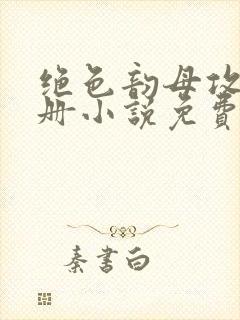 绝色韵母攻
册小说免費
秦書白